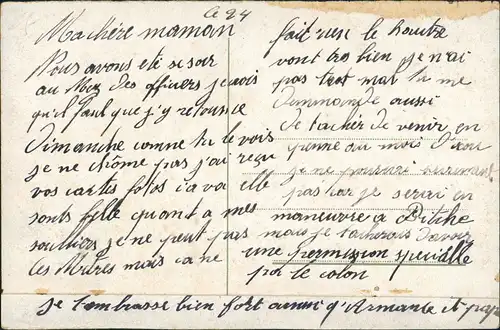 Ce 24
Machère maman
Nous avons eté se soir
au Mez des officiers je crois
qu'il faut que j'y retourne
Dimanche comme tu le vois
je ne chôme pas j'ai reçu
vos cartes fotos ça va elle
sont fille quant a mes
souliers je ne peut pas
les Mètres mais ca ne
fait rien le
vont tres bien je n'ai
pas trot mal tu me
Demmande aussi
de tacher de venir en
au mois d'aou
je ne pourai surement
pas car je serai en
maneuvre a Bitche
mais je tacherais d'avoir
une permission speciälle
par le colon
je t'embrasse bien fort ainsi q'Armance et pap